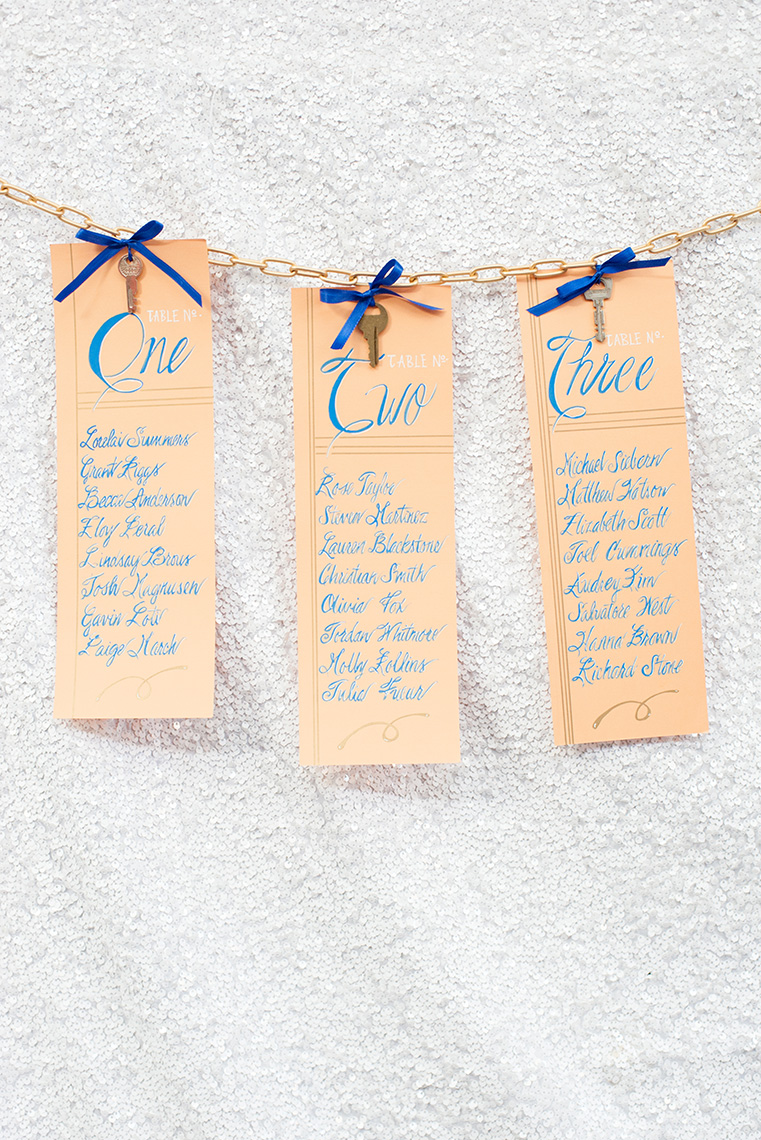 TABLE Nº.
One
Lorelai Summers
Grant Riggs
Becca Anderson
Eloy Feral
Lindsay Brous
Josh Magnusen
Gavin Low
Paige Marsh
TABLE Nº.
Two
Rose Taylor
Steven Martinez
Lauren Blackstone
Christian Smith
Olivia Fox
Jordan Whitmore
Molly Rollins
Julia
TABLE Nº.
Three
Michael Siebern
Matthew Watson
Elizabeth Scott
Joel Cummings
Audrey Kim
Salvatore West
Hanna Brown
Richard Stone